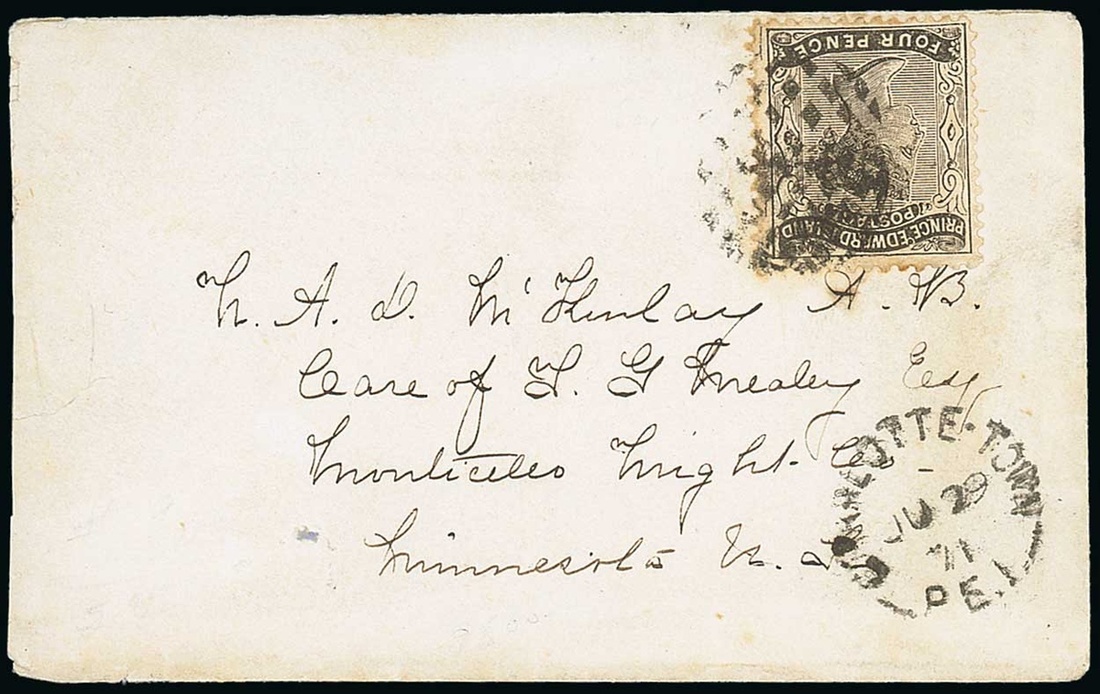 FOUR PENCE
POSTAGE
PRINCE EDWARD ISLAND
N. A. D. McKinlay A. B.
Care of F. G Mealey Esq
Monticello Wright Co
Minnesota U. S
CHARLOTTE-TOWN
JU 29
71
P.E.I